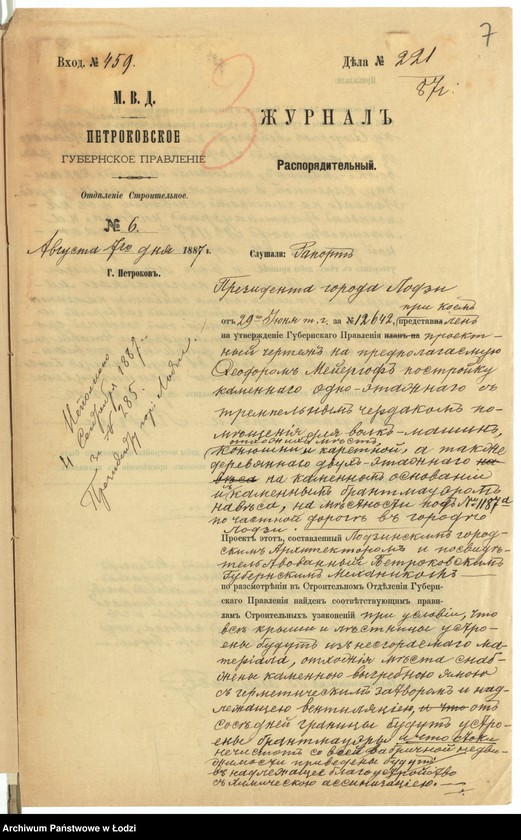 7
Вход. № 459.
Дѣла № 221
87 г.
М. В. Д.
ПЕТРОКОВСКОЕ
ГУБЕРНСКОЕ ПРАВЛЕНІЕ
Отдѣленіе Строительное.
№ 6.
Августа 7го дня 1887 г.
Г. Петроковъ.
3
ЖУРНАЛЪ
Распорядительный.
Слушали: Рапортъ
Президента города Лодзи
при коемъ
отъ 29го Іюня т. г. за № 12642, представленъ
на утвержденіе Губернскаго Правленія проект-
ный чертежъ на предполагаемую
Ѳеодоромъ Мейергофъ постройку
каменнаго одно-этажнаго съ
тремпельнымъ чердакомъ по-
мѣщенія для волкъ-машинъ,
отхожихъ мѣстъ,
конюшни и каретной, а также
деревяннаго двухъ-этажнаго
на каменномъ основаніи
и каменнымъ брантмауромъ
навѣса, на мѣстности подъ № 1187а
по частной дорогѣ въ городѣ
Лодзи.
Проектъ этотъ, составленный Лодзинскимъ город-
скимъ Архитекторомъ и посвидѣ-
тельствованный Петроковскимъ
Губернскимъ Механикомъ
по разсмотрѣніи въ Строительномъ Отдѣленіи Губерн-
скаго Правленія найденъ соотвѣтствующимъ прави-
ламъ Строительныхъ узаконеній при условіи, что
всѣ крыши и лѣстницы устро-
ены будутъ изъ несгораемаго ма-
теріала, отхожія мѣста снаб-
жены каменною выгребною ямою
съ герметическимъ затворомъ и над-
лежащею вентиляціею, отъ
сосѣдней границы будутъ устро-
ены брантмауры и что стоки
нечистотъ со всей фабричной недви-
жимости приведены будутъ
въ надлежащее благоустройство
съ химическою ассинизаціею.
Исполнено
4 Сентября 1887 г.
за № 285.
Президенту гор. Лодзи.
Archiwum Państwowe w Łodzi